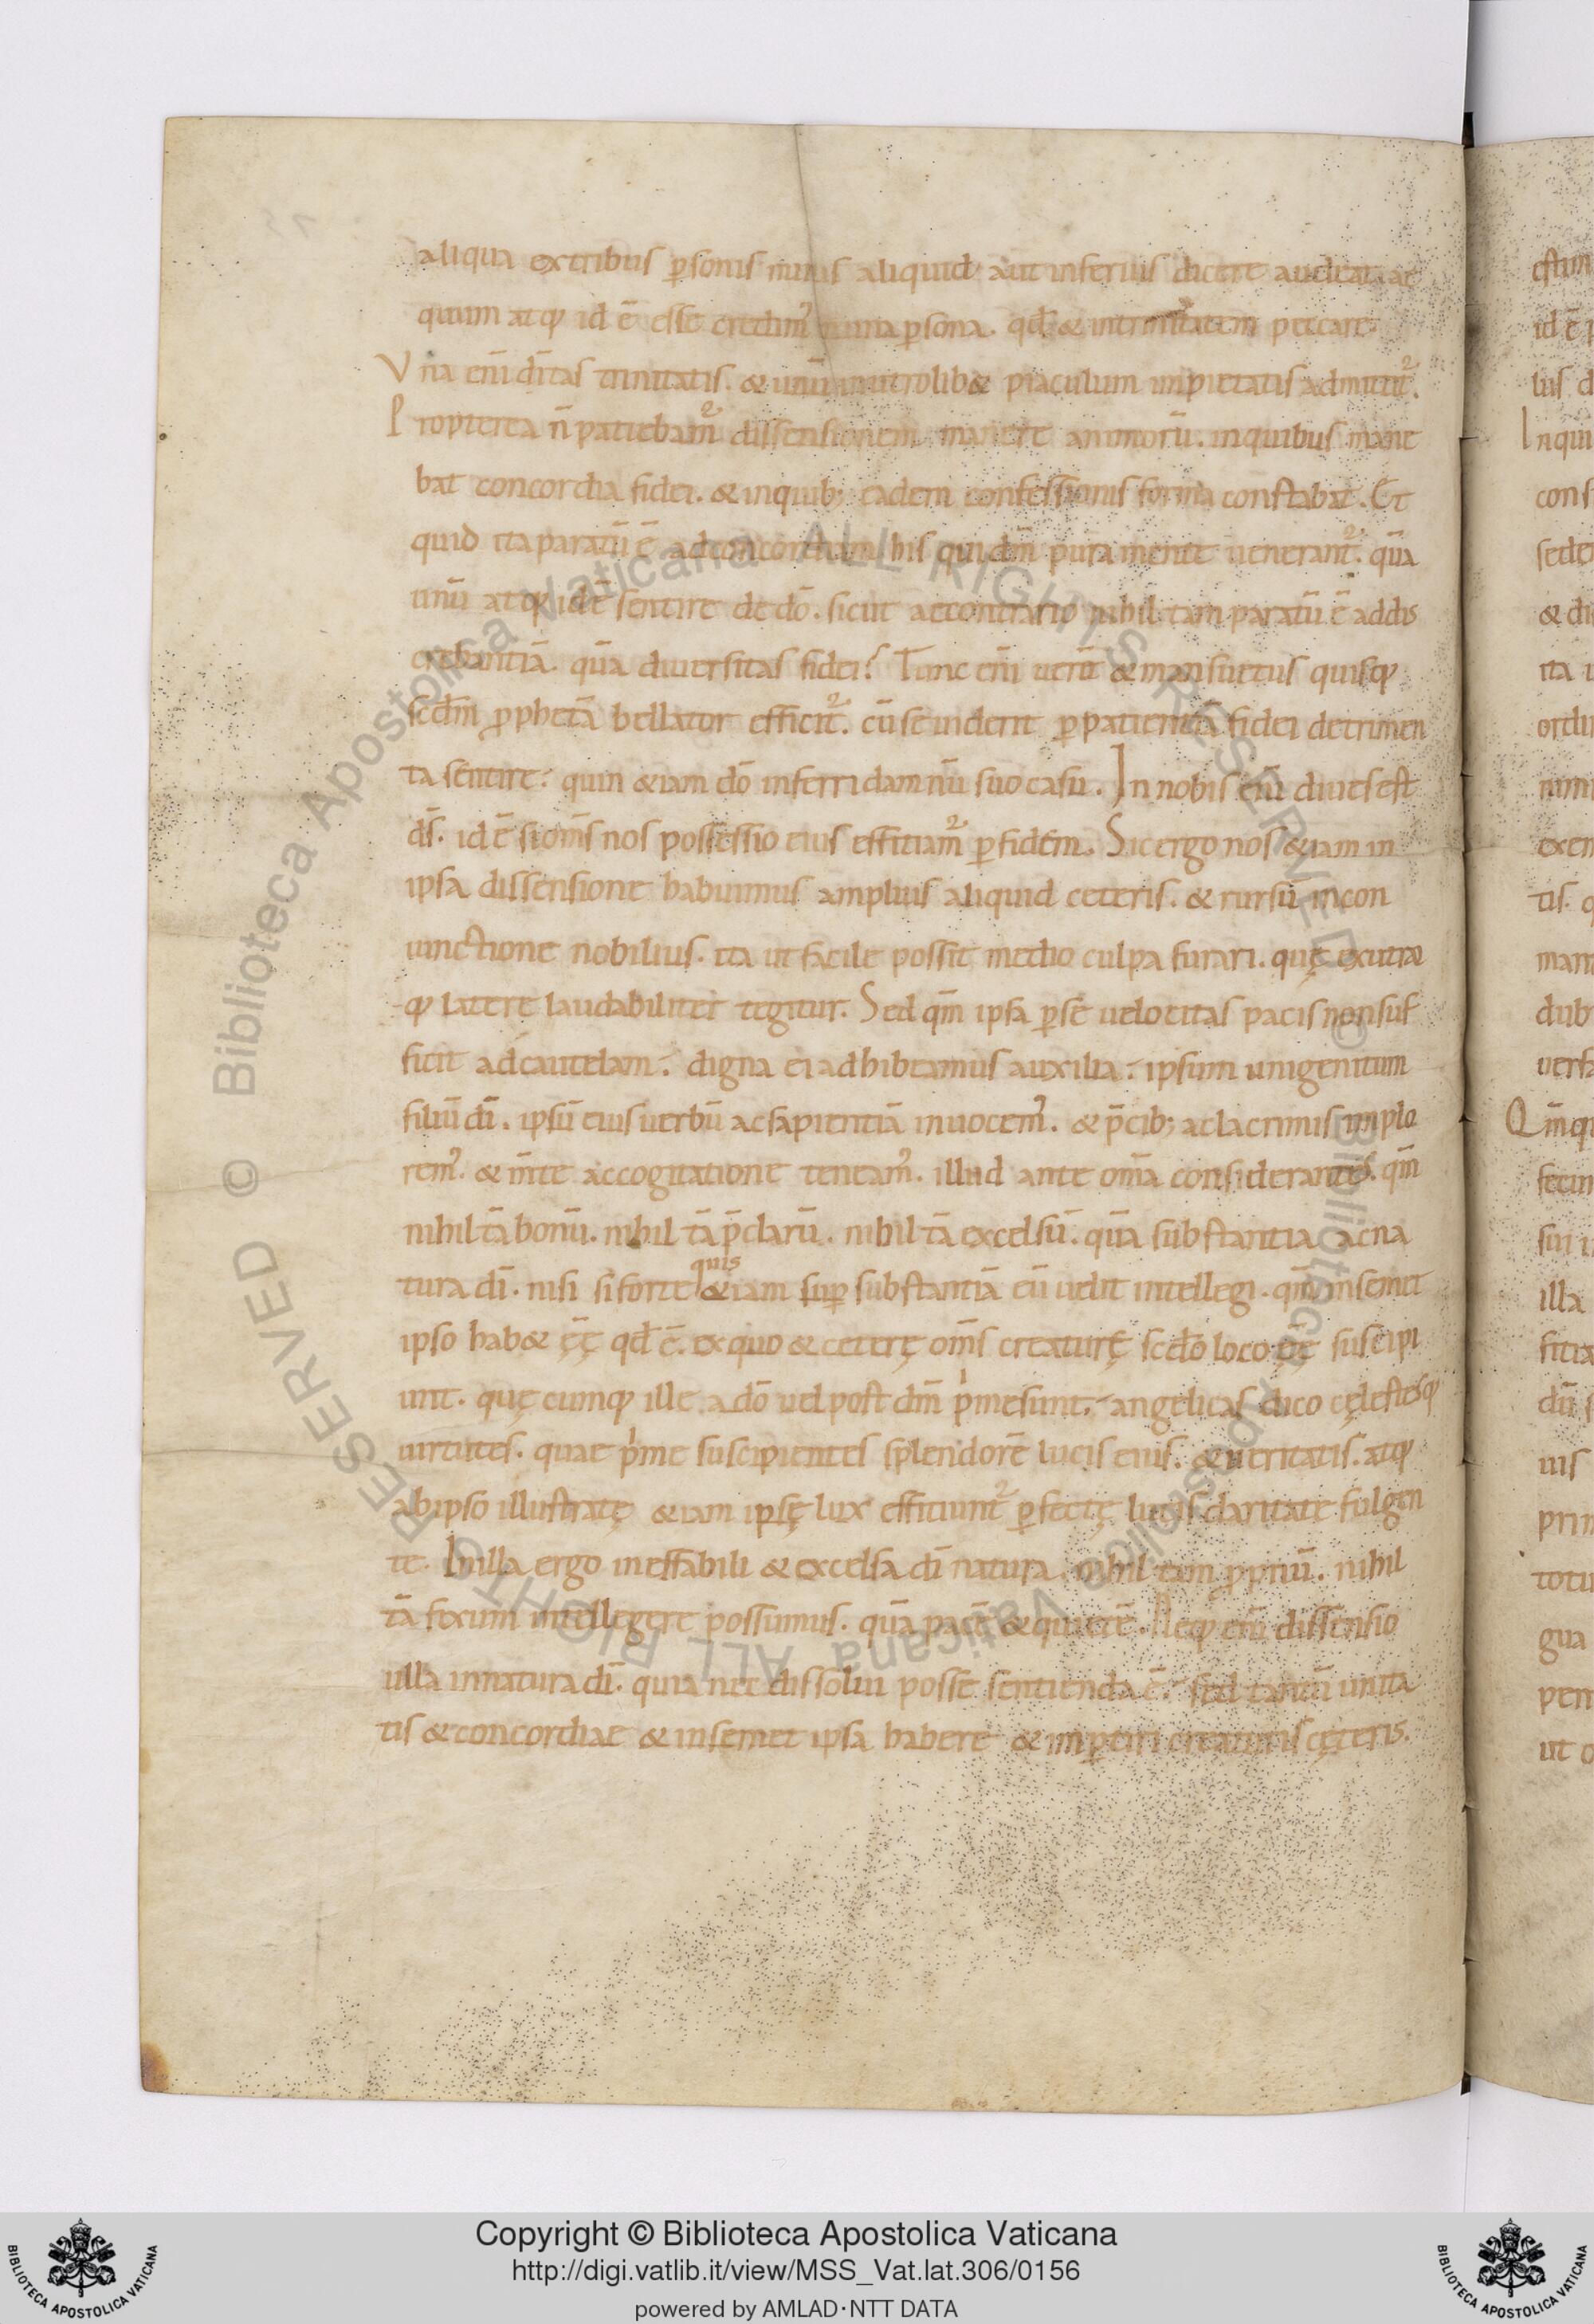 aliqua ex tribus ꝑsonis minus aliquid aut inferius dicere audeat. ae
quum atqꝫ id ē esse credim᾽ in una ꝑsona. qđ & in trinitatem peccare.
Vna eni͞ di͞tas trinitatis. & unū in utrolib& piaculum impietatis admittit᷑.
Propterea n̄ patiebam᷑ dissensionem manere animorū. in quibus mane
bat concordia fidei. & in quib; eadem confessionis forma constabat. Et
quid ita paratū ē ad concordiam his qui dm̄ pura mente uenerant᷑. quā
unū atqꝫ idē sentire de dō. sicut aecontrario nihil tam paratū ē ad dis
crepantiā. quā diuersitas fidei? Tunc eni͞ uerū & mansuetus quisqꝫ
scđm ꝓphetā bellator efficit᷑. cū se uiderit ꝑ patientiā fidei detrimen
ta sentire. quin &iam dō inferri damnū suo casū. In nobis eni͞ diues est
ds̄. id ē si om̄s nos possessio eius effitiam᷑ ꝑ fidem. Sic ergo nos &iam in
ipsa dissensione habuimus amplius aliquid ceteris. & rursū in con
iunctione nobilius. ita ut facile possit medio culpa furari. quę ex utra
qꝫ latere laudabiliter tegitur. Sed qm̄ ipsa ꝑ se uelocitas pacis non suf
ficit ad cautelam. digna ei adhibeamus auxilia. ipsum unigenitum
filiū dī. ipsū eius uerbū ac sapientiā inuocem᾽. & p̄cib; ac lacrimis implo
rem᾽. & m̄te ac cogitatione teneam᾽. illud ante om̄a considerantes. qm̄
nihil tā bonū. nihil tā p̄clarū. nihil tā excelsū. quā substantia ac na
tura dī. nisi si forte quis &iam suꝑ substantiā eū uelit intellegi. qm̄ in semet
ipso hab& ę̄ę qđ ē. ex quo & ceterę om̄s creaturę scđo loco ēē suscipi
unt. quę cumqꝫ ille a dō uel post dm̄ pͥme sunt. angelicas dico cęlestesqꝫ
uirtutes. quae pͥme suscipientes splendorē lucis eius. & ueritatis. atqꝫ
ab ipso illustratę &iam ipsę lux effitiunt᷑ ꝑfectę lucis claritate fulgen
te. In illa ergo ineffabili & excelsa dī natura. nihil tam ꝓpriū. nihil
tā fixum intellegere possumus. quā pacē & quietē. Neqꝫ eni͞ dissensio
ulla in natura dī. quia nec dissolui posse sentienda ē. sed tantū unita
tis & concordiae & in semet ipsa habere & imꝑtiri creaturis cęteris.
Copyright © Biblioteca Apostolica Vaticana
http://digi.vatlib.it/view/MSS_Vat.lat.306/0156
powered by AMLAD·NTT DATA